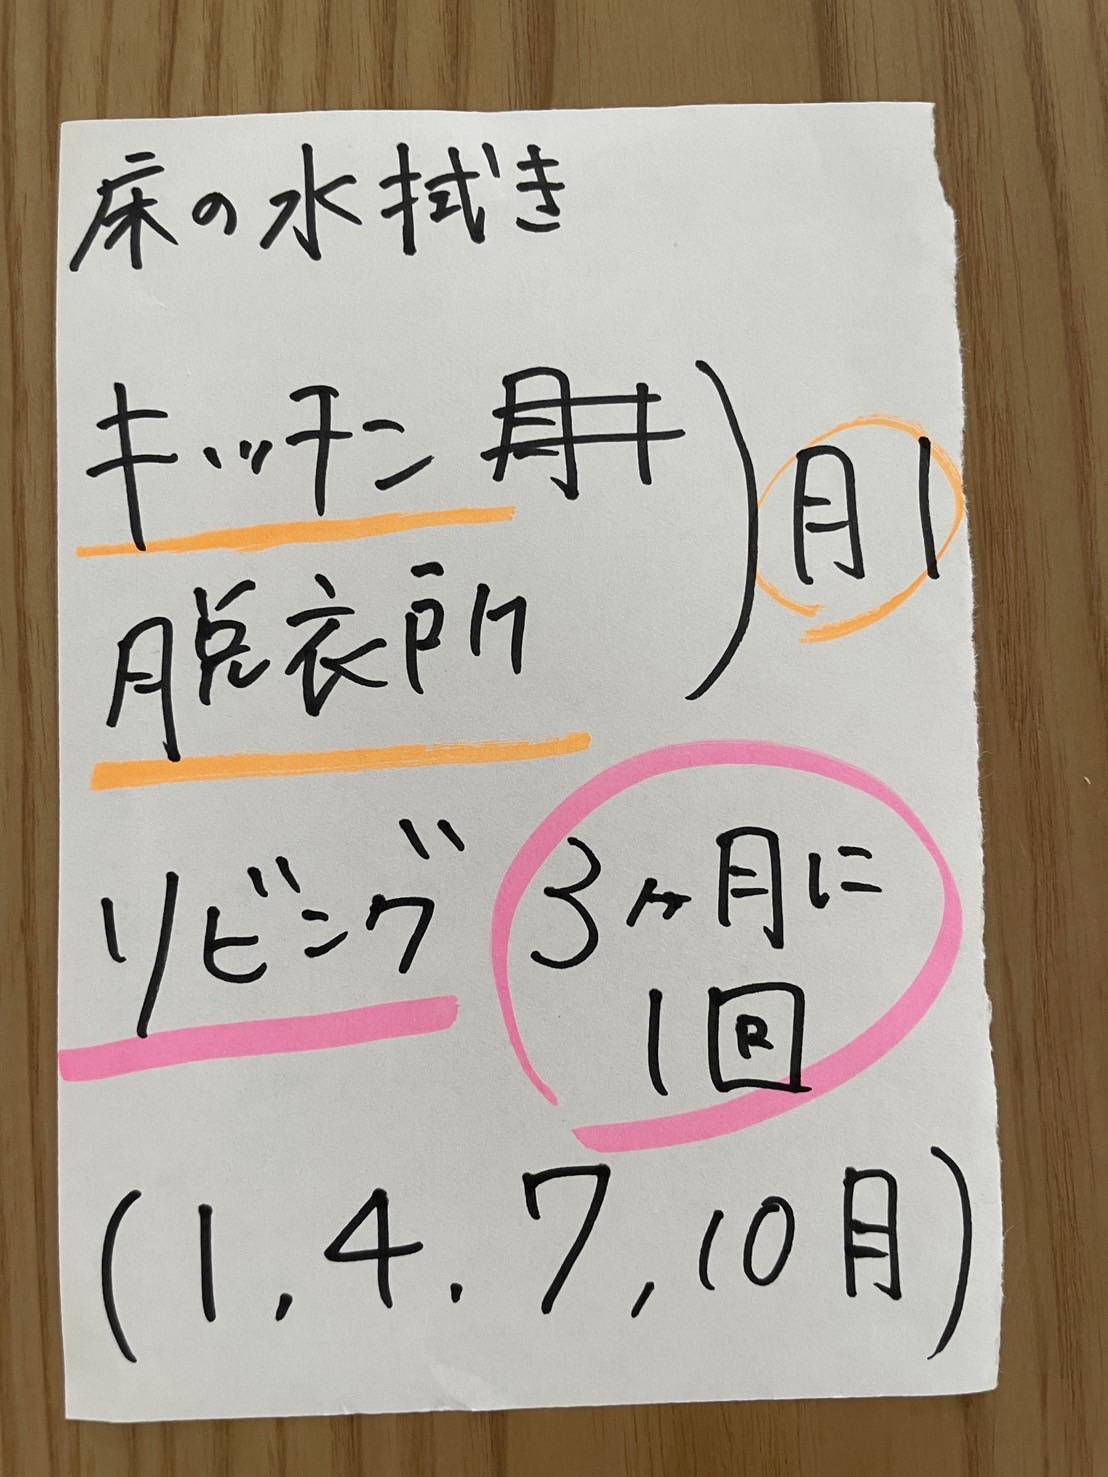 床の水拭き
キッチン
脱衣所
月1
リビング
3ヶ月に
1回
(1,4.7,10月)